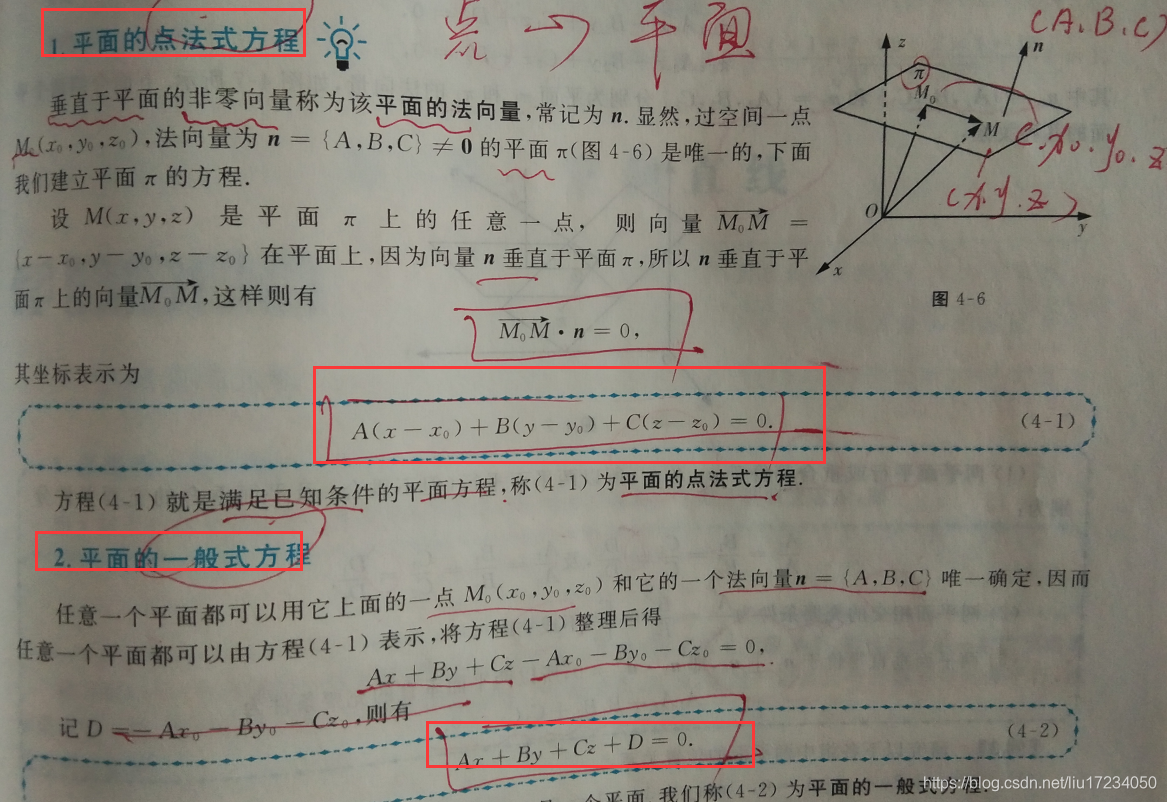 1. 平面的点法式方程
点 → 平面
(A.B.C)
垂直于平面的非零向量称为该平面的法向量,常记为 n. 显然,过空间一点
M₀(x₀,y₀,z₀),法向量为 n = {A,B,C} ≠ 0 的平面 π(图 4-6) 是唯一的,下面
我们建立平面 π 的方程.
设 M(x,y,z) 是平面 π 上的任意一点, 则向量 M₀M =
{x－x₀,y－y₀,z－z₀} 在平面上,因为向量 n 垂直于平面 π,所以 n 垂直于平
面 π 上的向量M₀M,这样则有
z
n
π
M₀
M
(x₀.y₀.z
(x.y.z)
O
y
x
图 4-6
M₀M · n = 0,
其坐标表示为
A(x－x₀)＋B(y－y₀)＋C(z－z₀) = 0. (4-1)
方程(4-1) 就是满足已知条件的平面方程,称(4-1) 为平面的点法式方程.
2. 平面的一般式方程
任意一个平面都可以用它上面的一点 M₀(x₀,y₀,z₀) 和它的一个法向量n = {A,B,C} 唯一确定,因而
任意一个平面都可以由方程(4-1) 表示,将方程(4-1) 整理后得
Ax＋By＋Cz－Ax₀－By₀－Cz₀ = 0,
记 D =－Ax₀－By₀－Cz₀,则有
Ax＋By＋Cz＋D = 0. (4-2)
一个平面,我们称(4-2) 为平面的一般式方程.
https://blog.csdn.net/liu17234050